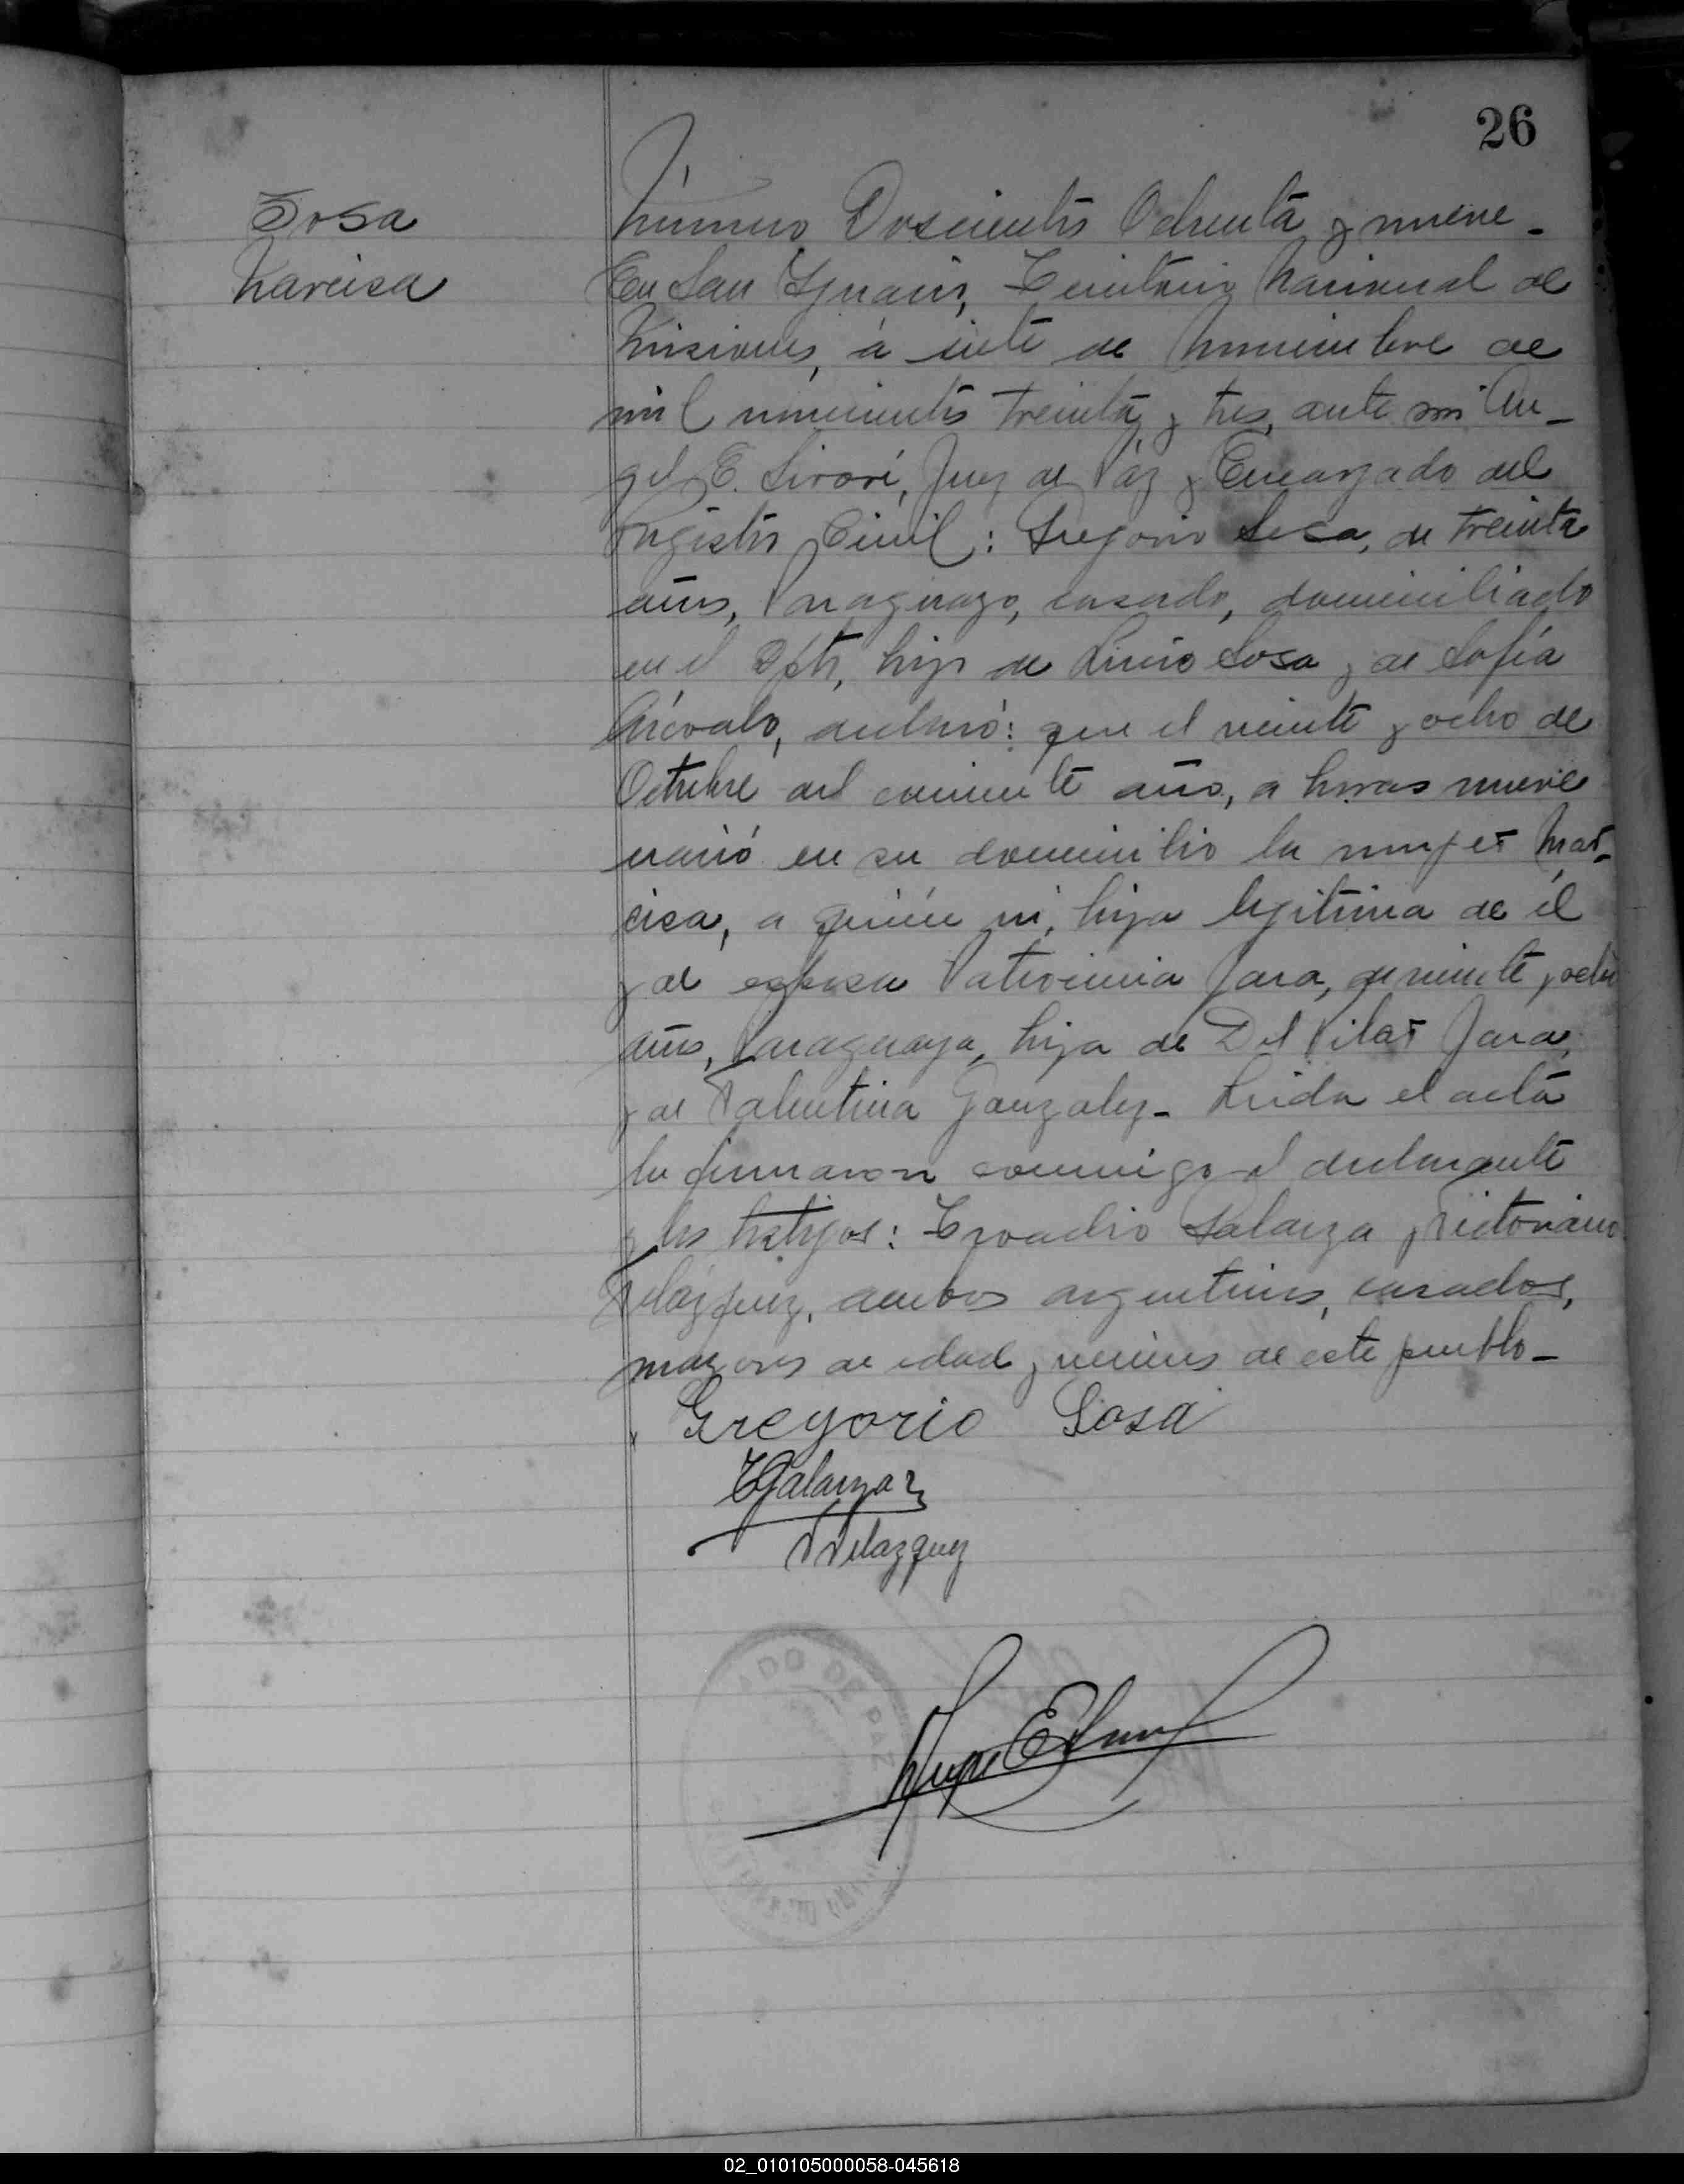 26
Sosa
Narcisa
Número Doscientos Ochenta y nueve -
En San Ignacio, Territorio Nacional de
Misiones, á siete de Noviembre de
mil novecientos treinta y tres, ante mi An-
gel E. Juez de Páz y Encargado del
Registro Civil: Gregorio Sosa, de treinta
años, Paraguayo, casado, domiciliado
en el Dpto, hijo de Lucio Sosa y de Sofía
Arévalo, declaró: que el veinte y ocho de
Octubre del corriente año, a horas nueve
nació en su domicilio la mujer Nar-
cisa, a quién ví, hija legítima de él
y de esposa Patrocinia Jara, de veinte y ocho
años, Paraguaya, hija de Del Pilar Jara,
y de Valentina Gonzalez - Leida el acta
la firmaron conmigo el declarante
y los testigos: Galarza y Victoriano
Velázquez, ambos argentinos, casados,
mayores de edad y vecinos de este pueblo -
Gregorio Sosa
Galarza
V Velazquez
ADO DE PAZ